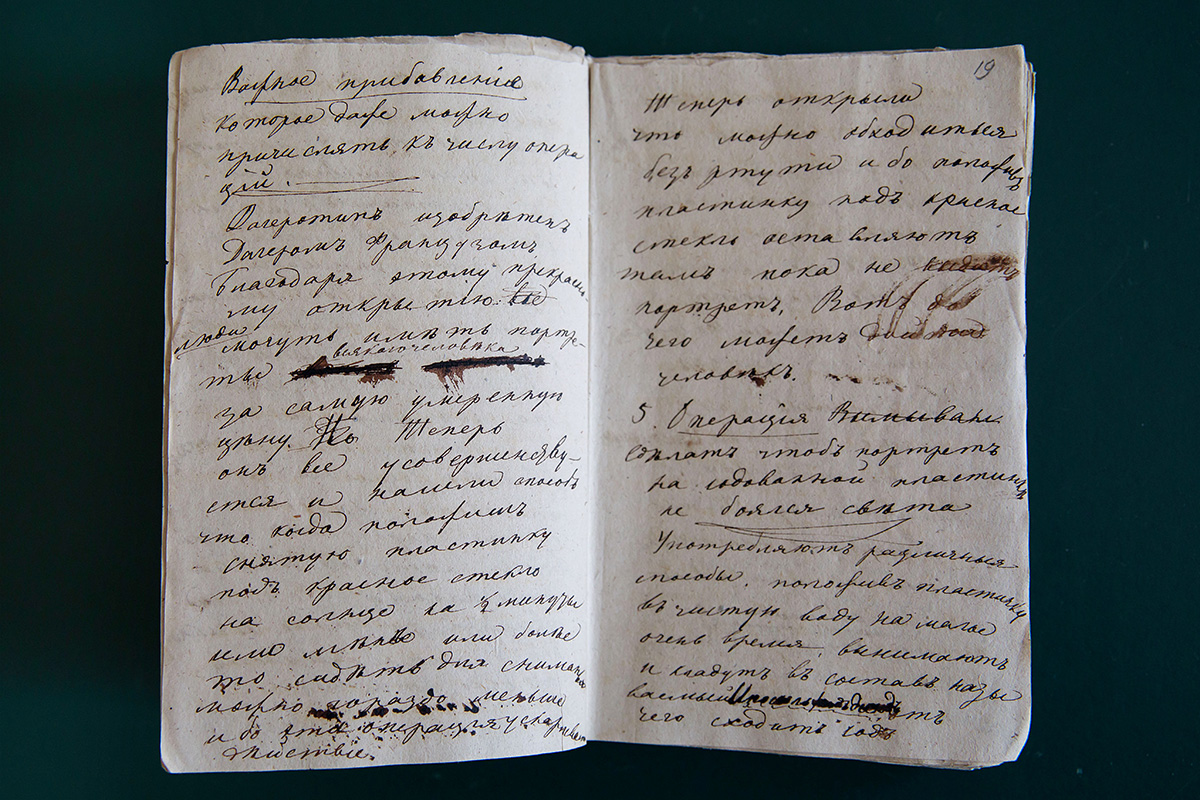 Важное прибавленіе
которое даже можно
причислять къ числу опера
цій.
Дагеротипъ изобрѣтенъ
Дагеромъ Французомъ
Благодаря этому прекрасно
му открытію все
люди
могутъ имѣть портре-
ты
всякого человѣка
за самую умеренную
цѣну. Но Теперь
онъ все усовершенству-
ется и нашли способъ
что когда положишь
снятую пластинку
подъ красное стекло
на солнце на ½ минуты
или мѣнѣе или болѣе
то сидѣть для сниманья
можно гораздо меньше
и бо эта операція ускоряетъ
дѣйствіе.
19
Теперь открыли
что можно обходиться
безъ ртути и бо положивъ
пластинку подъ красное
стекло оставляютъ
тамъ пока не
портретъ, Вотъ до
чего можетъ
человѣкъ.
5. Операція Вымыван
сдѣлать чтобъ портретъ
на іодованной пластинке
не боялся свѣта
Употребляютъ различныя
способы. положивъ пластинку
въ чистую воду на малое
очень время, вынимаютъ
и кладутъ въ составъ назы
ваемый
чего сходить іодъ